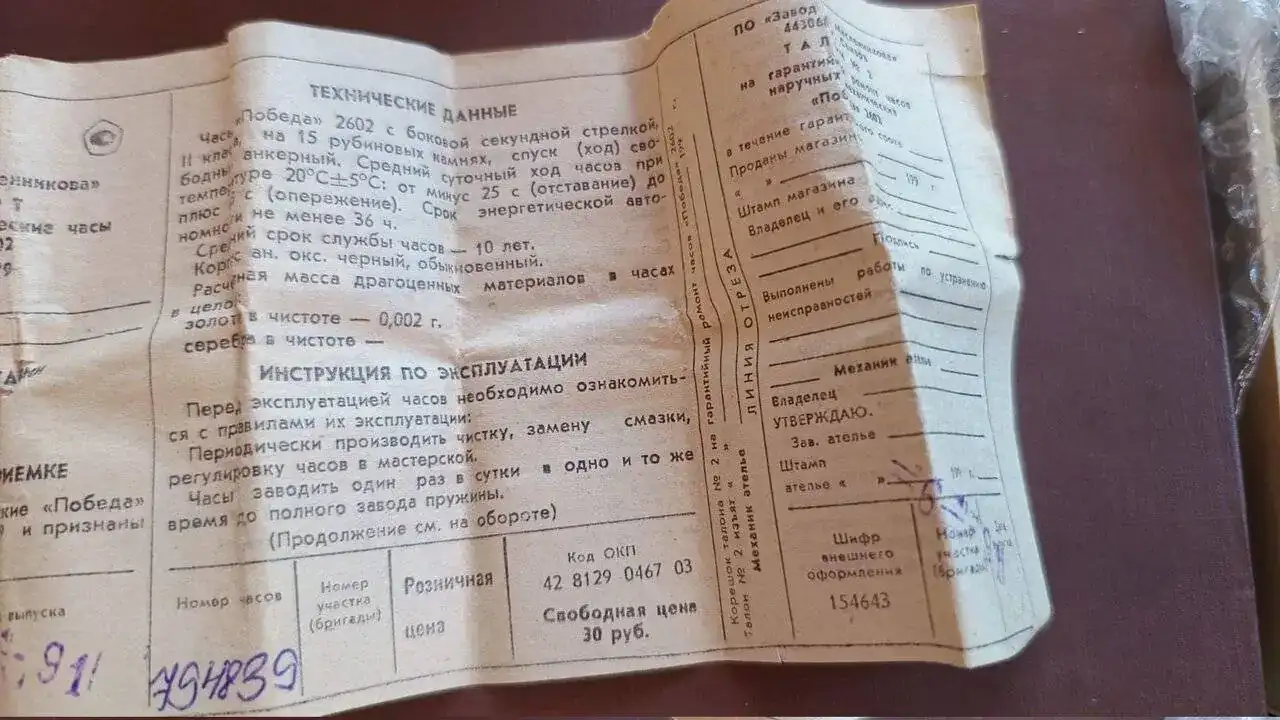 енникова»
Т
еские часы
02
ИЕМКЕ
кие «Победа»
и признаны
выпуска
91
ТЕХНИЧЕСКИЕ ДАННЫЕ
Час «Победа» 2602 с боковой секундной стрелкой,
II кла на 15 рубиновых камнях, спуск (ход) сво-
бодны анкерный. Средний суточный ход часов при
темпе туре 20°С±5°С: от минус 25 с (отставание) до
плюс с (опережение). Срок энергетической авто-
номно и не менее 36 ч.
Сре ний срок службы часов — 10 лет.
Корпс ан. окс. черный, обыкновенный.
Расче ная масса драгоценных материалов в часах
в цело
золот в чистоте — 0,002 г.
серебр в чистоте —
ИНСТРУКЦИЯ ПО ЭКСПЛУАТАЦИИ
Перед эксплуатацией часов необходимо ознакомить-
ся с правилами их эксплуатации:
Периодически производить чистку, замену смазки,
регулировку часов в мастерской.
Часы заводить один раз в сутки в одно и то же
время до полного завода пружины.
(Продолжение см. на обороте)
Номер часов
794839
Номер
участка
(бригады)
Розничная
цена
Код ОКП
42 8129 0467 03
Свободная цена
30 руб.
Корешок талона № 2 на гарантийный ремонт часов «Победа» 2602
талон № 2 изъят «
Механик ателье
ЛИНИЯ ОТРЕЗА
ПО «Завод
44306
ТАЛ
на гарантий часов
наручных
«Поб 2602
в течение гарант ного срока
Проданы магазин
« » 199 г.
Штамп магазина
Владелец и его
Подпись
Выполнены работы по устранению
неисправностей
Механик
Владелец
УТВЕРЖДАЮ.
Зав. ателье
Штамп
ателье « » 199
Шифр
внешнего
оформления
154643
Номер
участка
(бригады)